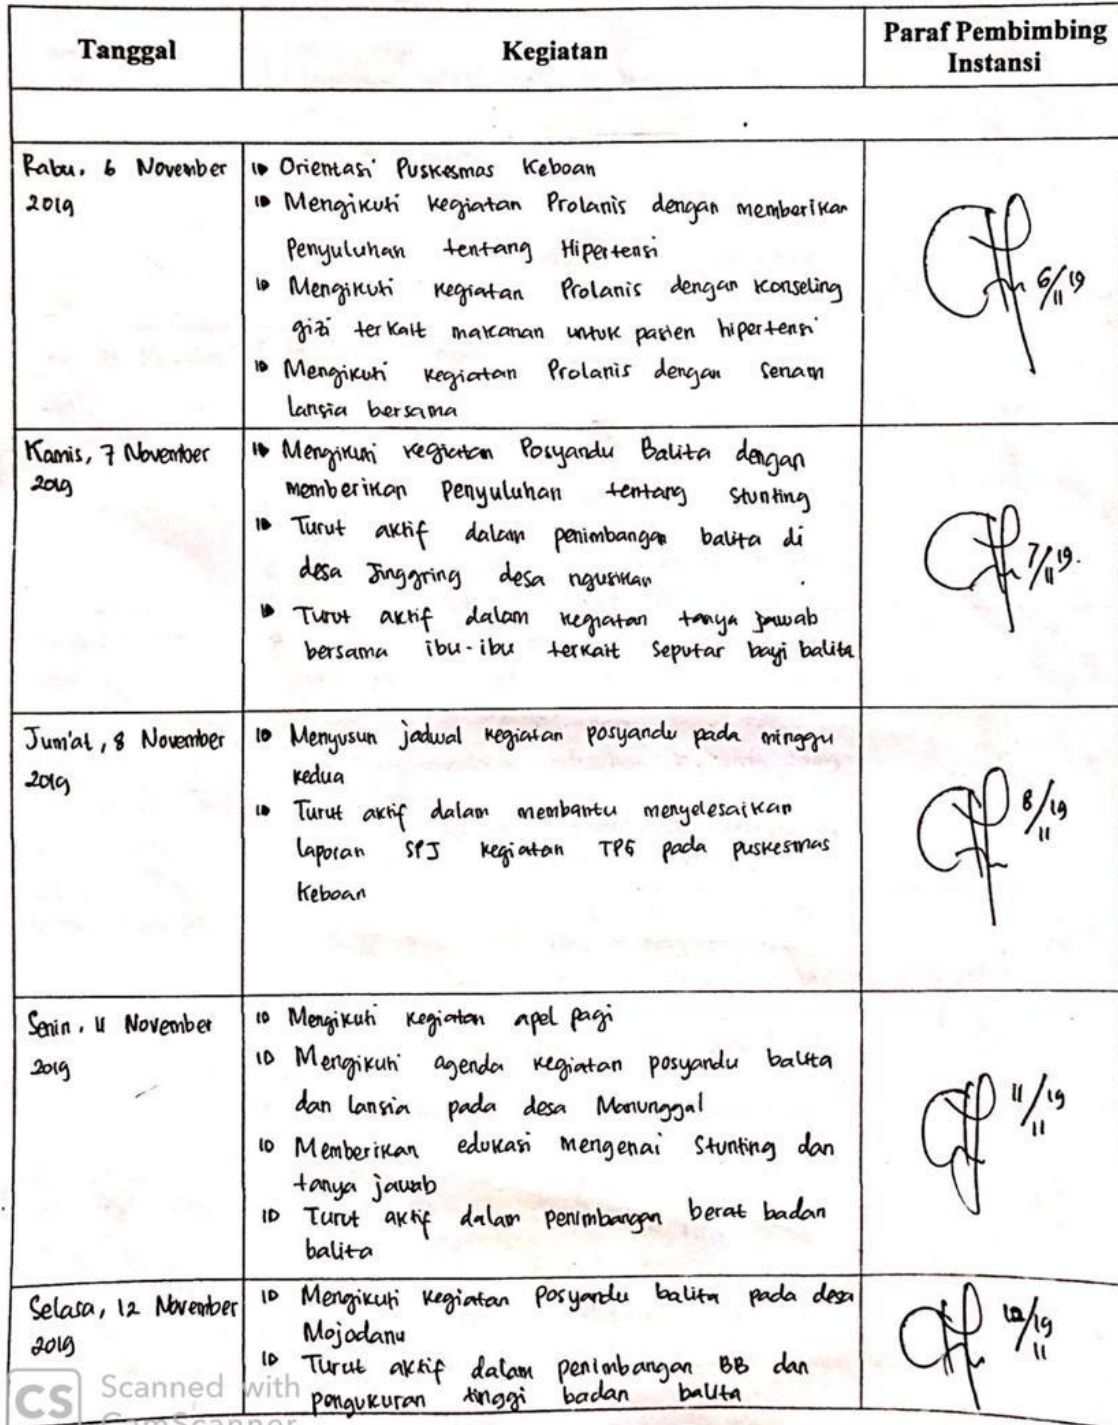 Tanggal
Kegiatan
Paraf Pembimbing
Instansi
Rabu, 6 November
2019
Orientasi Puskesmas Keboan
Mengikuti kegiatan Prolanis dengan memberikan
Penyuluhan tentang Hipertensi
Mengikuti kegiatan Prolanis dengan konseling
gizi terkait makanan untuk pasien hipertensi
Mengikuti kegiatan Prolanis dengan senam
lansia bersama
6/11 19
Kamis, 7 November
2019
Mengikuti kegiatan Posyandu Balita dengan
memberikan Penyuluhan tentang Stunting
Turut aktif dalam penimbangan balita di
desa Jinggring desa ngusikan
Turut aktif dalam kegiatan tanya jawab
bersama ibu-ibu terkait seputar bayi balita
7/11 19.
Jum'at, 8 November
2019
Menyusun jadwal kegiatan posyandu pada minggu
kedua
Turut aktif dalam membantu menyelesaikan
laporan SPJ kegiatan TPG pada puskesmas
Keboan
8/11 19
Senin, 11 November
2019
Mengikuti kegiatan apel pagi
Mengikuti agenda kegiatan posyandu balita
dan lansia pada desa Manunggal
Memberikan edukasi mengenai Stunting dan
tanya jawab
Turut aktif dalam penimbangan berat badan
balita
11/11 19
Selasa, 12 November
2019
Mengikuti kegiatan posyandu balita pada desa
Mojodanu
Turut aktif dalam penimbangan BB dan
pengukuran tinggi badan balita
12/11 19
CS Scanned with
CamScanner